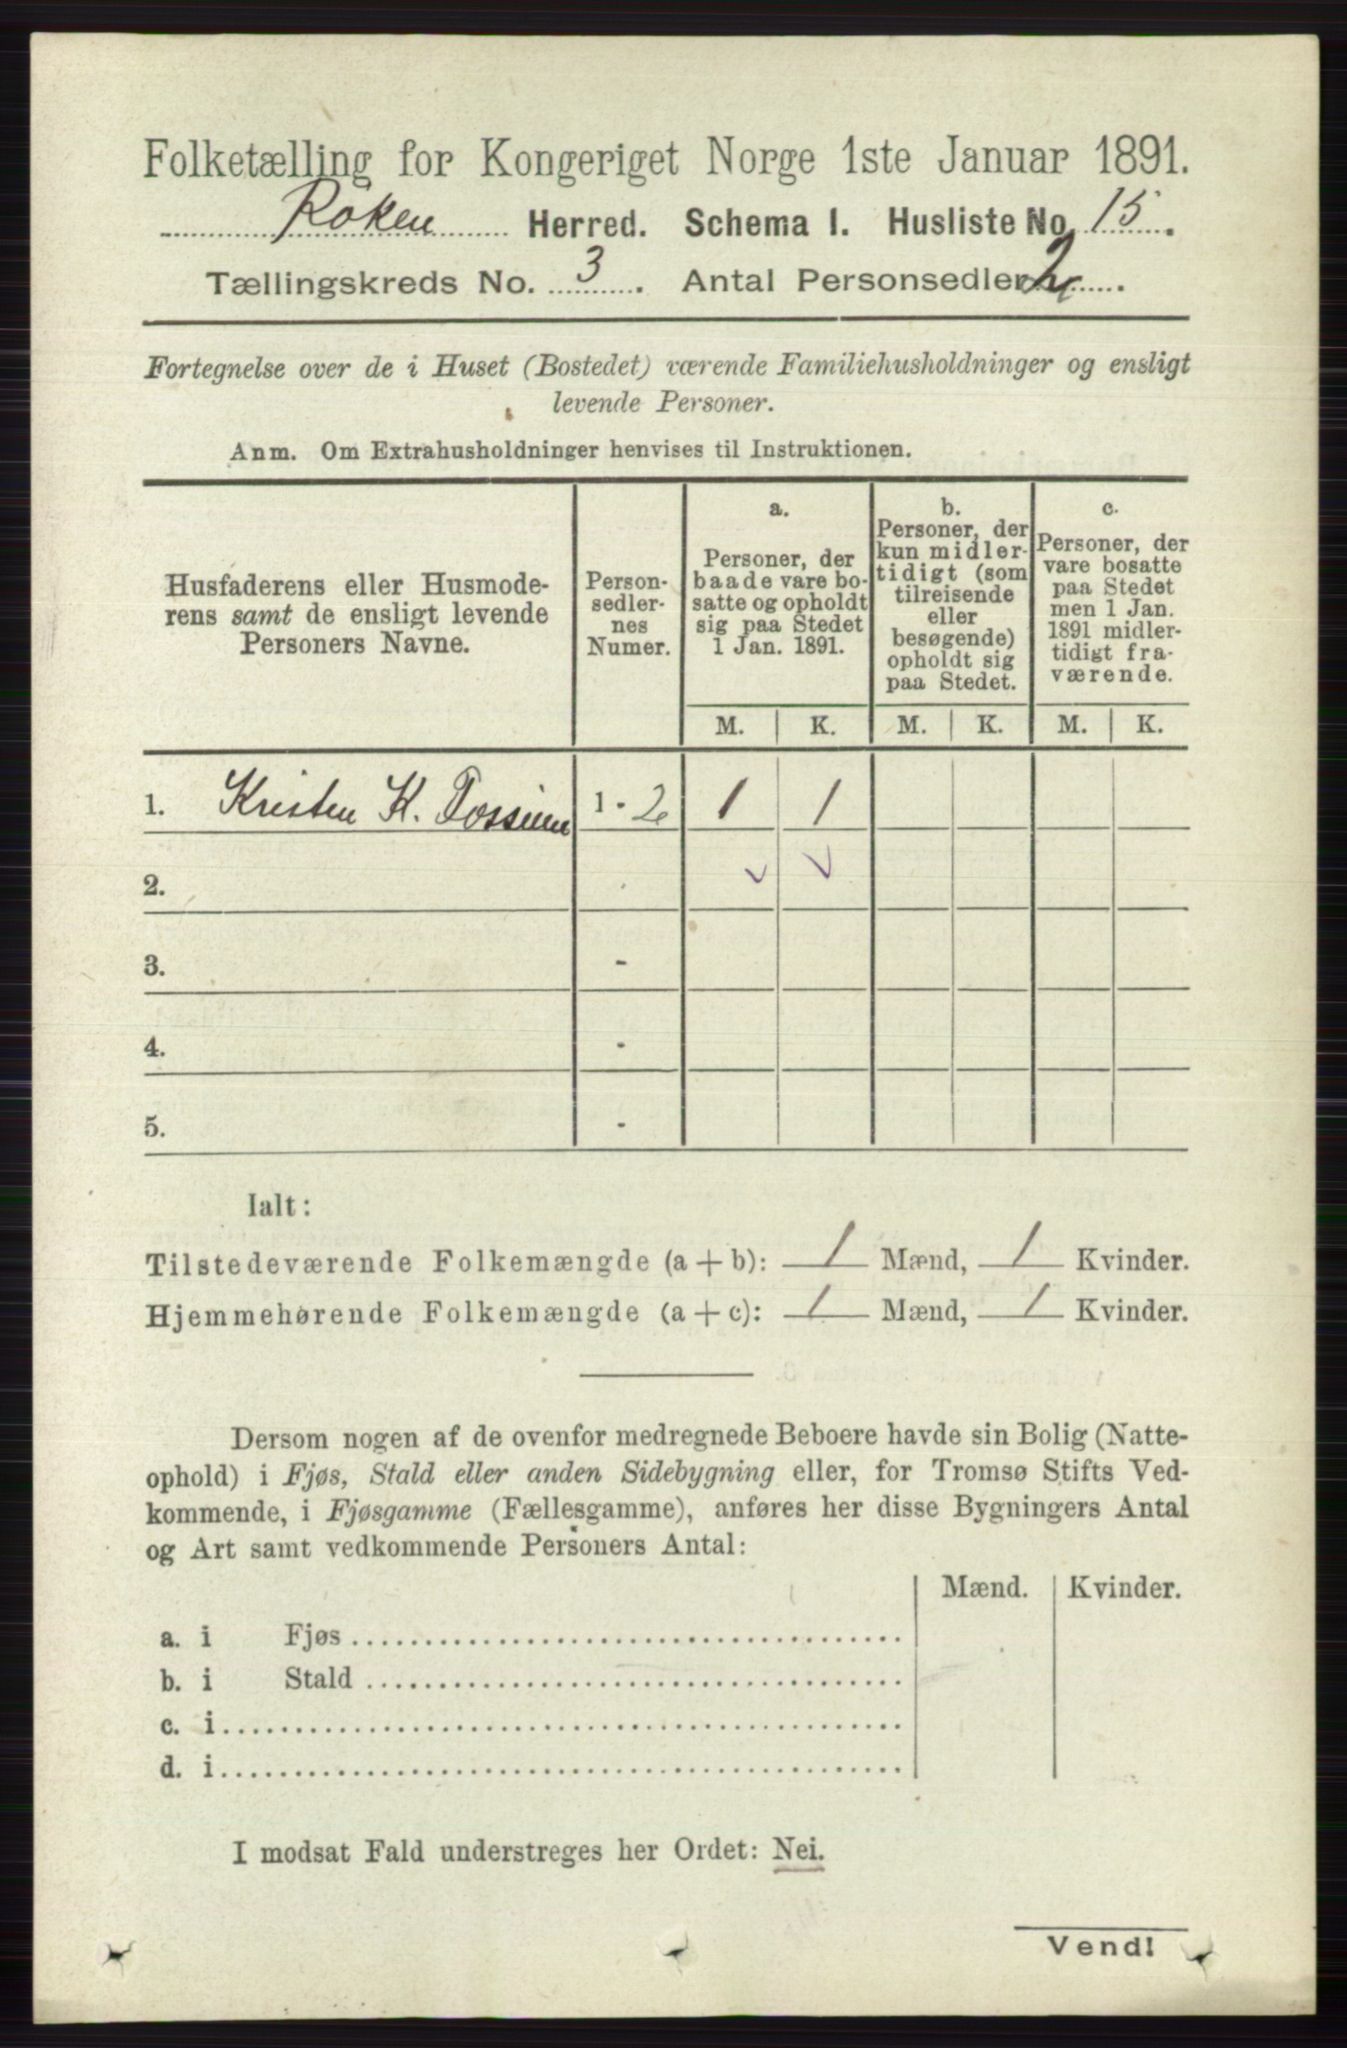 Folketælling for Kongeriget Norge 1ste Januar 1891.
Röken Herred. Schema I. Husliste No. 15.
Tællingskreds No. 3. Antal Personsedler 2.
Fortegnelse over de i Huset (Bostedet) værende Familiehusholdninger og ensligt
levende Personer.
Anm. Om Extrahusholdninger henvises til Instruktionen.
Husfaderens eller Husmode-
rens samt de ensligt levende
Personers Navne.
Person-
sedler-
nes
Numer.
a.
Personer, der
baade vare bo-
satte og opholdt
sig paa Stedet
1 Jan. 1891.
b.
Personer, der
kun midler-
tidigt (som
tilreisende
eller
besøgende)
opholdt sig
paa Stedet.
c.
Personer, der
vare bosatte
paa Stedet
men 1 Jan.
1891 midler-
tidigt fra-
værende.
M. K. M. K. M. K.
1. Kristen K. Fossum 1 - 2 1 1
2.
3. -
4. -
5. -
Ialt:
Tilstedeværende Folkemængde (a + b): 1 Mænd, 1 Kvinder.
Hjemmehørende Folkemængde (a + c): 1 Mænd, 1 Kvinder.
Dersom nogen af de ovenfor medregnede Beboere havde sin Bolig (Natte-
ophold) i Fjøs, Stald eller anden Sidebygning eller, for Tromsø Stifts Ved-
kommende, i Fjøsgamme (Fællesgamme), anføres her disse Bygningers Antal
og Art samt vedkommende Personers Antal:
Mænd. Kvinder.
a. i Fjøs
b. i Stald
c. i
d. i
I modsat Fald understreges her Ordet: Nei.
Vend!